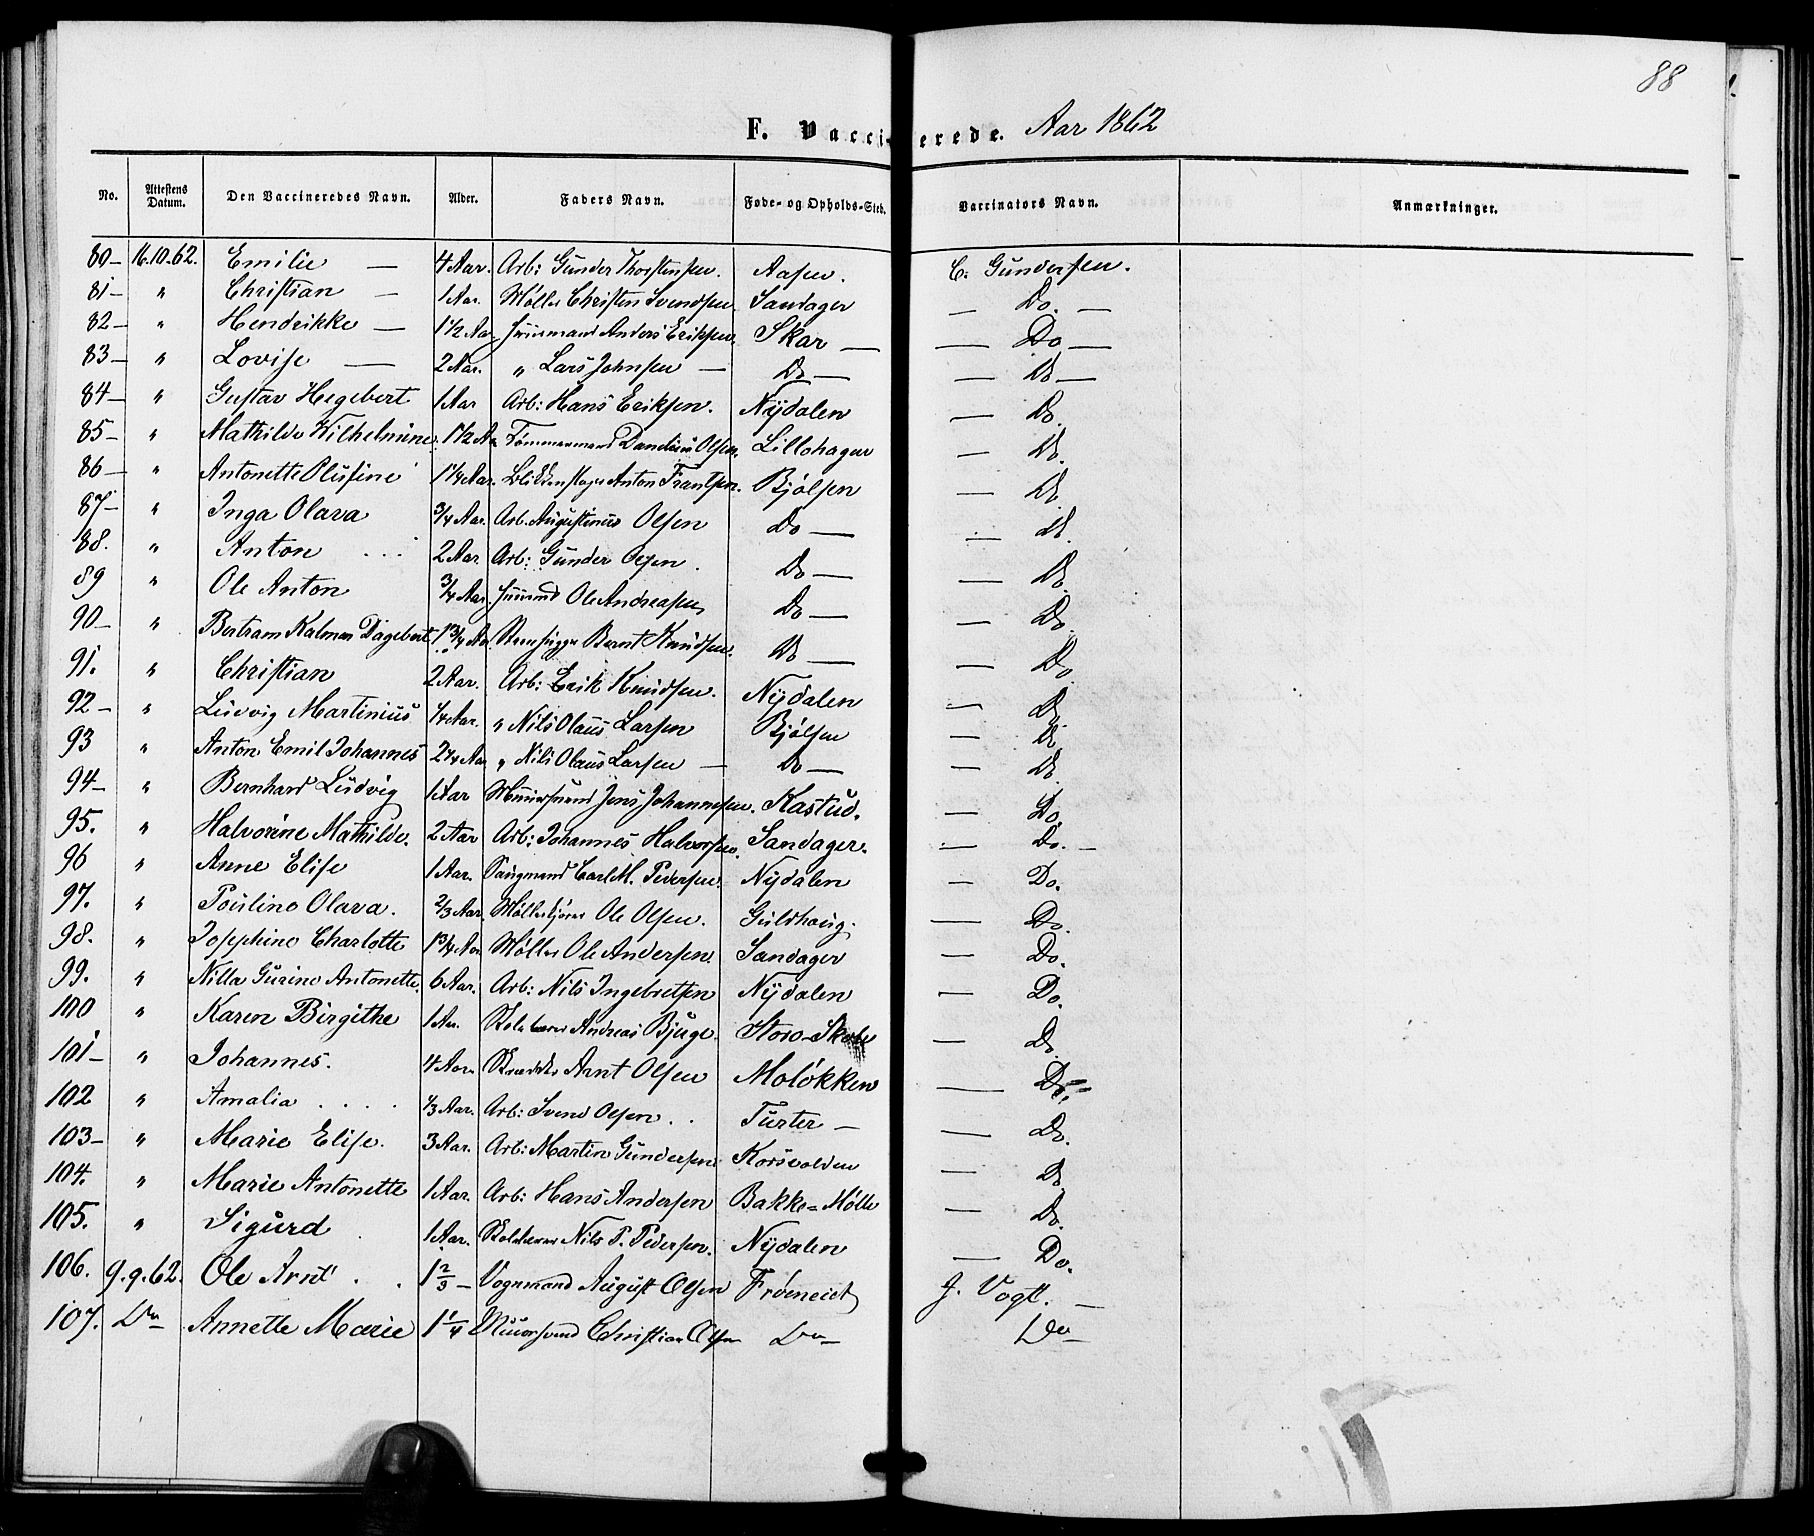 88
F. Vaccinerede. Aar 1862
No. Attestens Datum. Den Vaccineredes Navn. Alder. Faders Navn. Føde- og Opholds-Sted. Vaccinators Navn. Anmærkninger.
80- 16.10.62. Emilie — 4 Aar. Arb: Gunder Thorstensen. Aasen. C. Gundersen.
81- " Christian — 1 Aar. Møller Christen Svendsen Sandager — Do. —
82- " Hendrikke — 1 1/2 Aar Huusmand Anders Eriksen. Skar — — Do —
83- " Lovise — 2 Aar. " Lars Johnsen — Do — — Do —
84- " Gustav Hegebert 1 Aar Arb: Hans Eriksen. Nydalen — Do.
85- " Mathilde Wilhelmine 1 1/2 Aar Tømmermand Olsen. Lillohagen — Do.
86- " Antonette Olufine 1 1/4 Aar. Anton Frantsen. Bjølsen — Do.
87- " Inga Olava 3/4 Aar. Arb. Augustinus Olsen Do — — Do.
88. " Anton ... 2 Aar. Arb: Gunder Olsen. Do — — Do.
89 " Ole Anton 3/4 Aar. Huusmd Ole Andreasen Do — — Do.
90- " Bertram Kalmar Dagebert 1 3/4 Aar Bernt Knudsen. Do — — Do
91. " Christian 2 Aar. Arb: Erik Knudsen. Nydalen — Do.
92- " Ludvig Martinius 1/4 Aar. " Nils Olaus Larsen Bjølsen — Do
93 " Anton Emil Johannes 2 1/4 Aar " Nils Olaus Larsen — Do — — Do.
94- " Bernhard Ludvig 1 Aar Muursvend Jens Johannesen. Kastud. — Do.
95. " Halvorine Mathilde. 2 Aar Arb: Johannes Halvorsen. Sandager. — Do. —
96 " Anne Elise 1 Aar. Saugmand Carl M. Pedersen. Nydalen — Do.
97. " Pouline Olava. 2/3 Aar. Møllekjører Ole Olsen. Guldhaug. — Do.
98. " Josephine Charlotte 1 3/4 Aar Møller Ole Andersen Sandager — Do.
99. " Nilla Gurine Antonette. 6 Aar. Arb: Nils Ingebretsen Nydalen — Do.
100 " Karen Birgithe 1 Aar. Skolelærer Andreas Bjuge. Storo-Skole — Do.
101- " Johannes. 4 Aar. Skrædder Arnt Olsen Moløkken — Do.
102 " Amalia .... 1/3 Aar. Arb: Svend Olsen .. Turter — — Do.
103- " Marie Elise. 3 Aar. Arb: Martin Gundersen Korsvolden — Do.
104. " Marie Antonette 1 Aar. Arb: Hans Andersen Bakke=Mølle — Do.
105. " Sigurd 1 Aar. Skolelærer Nils P. Pedersen. Nydalen — Do.
106. 9.9.62. Ole Arnt .. 1 2/3 — Vognmand August Olsen Frøeneiet J. Vogt. —
107. Do Annette Marie 1 1/4 Muursvend Christian Olsen Do Do